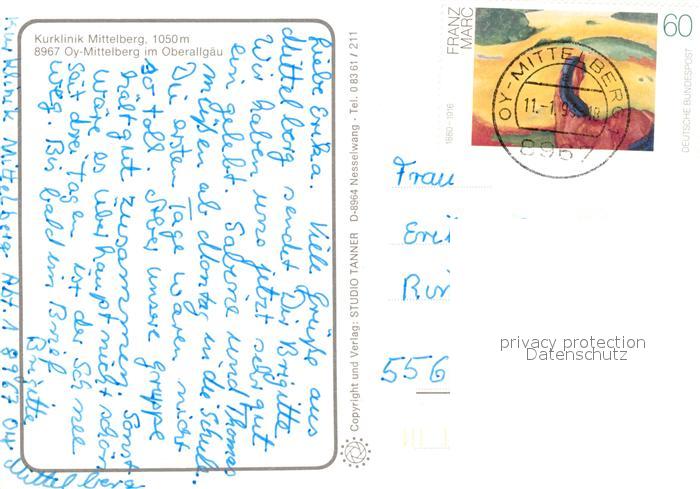 Kurklinik Mittelberg, 1050 m
8967 Oy-Mittelberg im Oberallgäu
Liebe Erika. Viele Grüße aus
Mittelberg sendet Dir Brigitte
Wir haben uns jetzt sehr gut
ein gelebt. Sabine und Thomas
müßen ab Montag in die Schule.
Die ersten Tage waren nicht
so toll. Aber unsere Gruppe
hält gut zusammen. Sonst
wäre es überhaupt nicht schön
Seit drei Tagen ist der Schnee
weg. Bis bald im Brief
Brigitte
Kurklinik Mittelberg Abt. 1 8967 Oy Mittelberg
Copyright und Verlag: STUDIO TANNER D-8964 Nesselwang · Tel. 0 83 61 / 211
FRANZ MARC
1880-1916
60
DEUTSCHE BUNDESPOST
OY-MITTELBERG
8967
Frau
556
privacy protection
Datenschutz